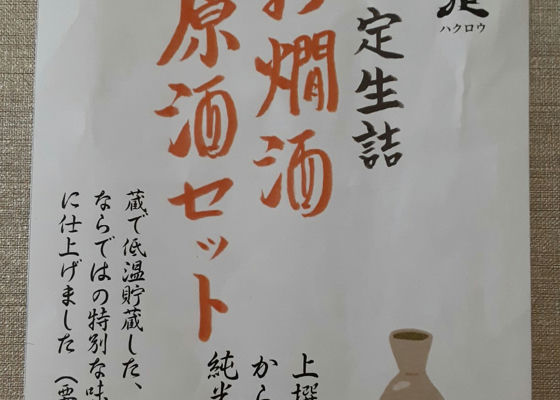 ハクロウ
定生詰
お燗酒
原酒セット
上撰
から
純米
蔵で低温貯蔵した、
ならではの特別な味
に仕上げました（要